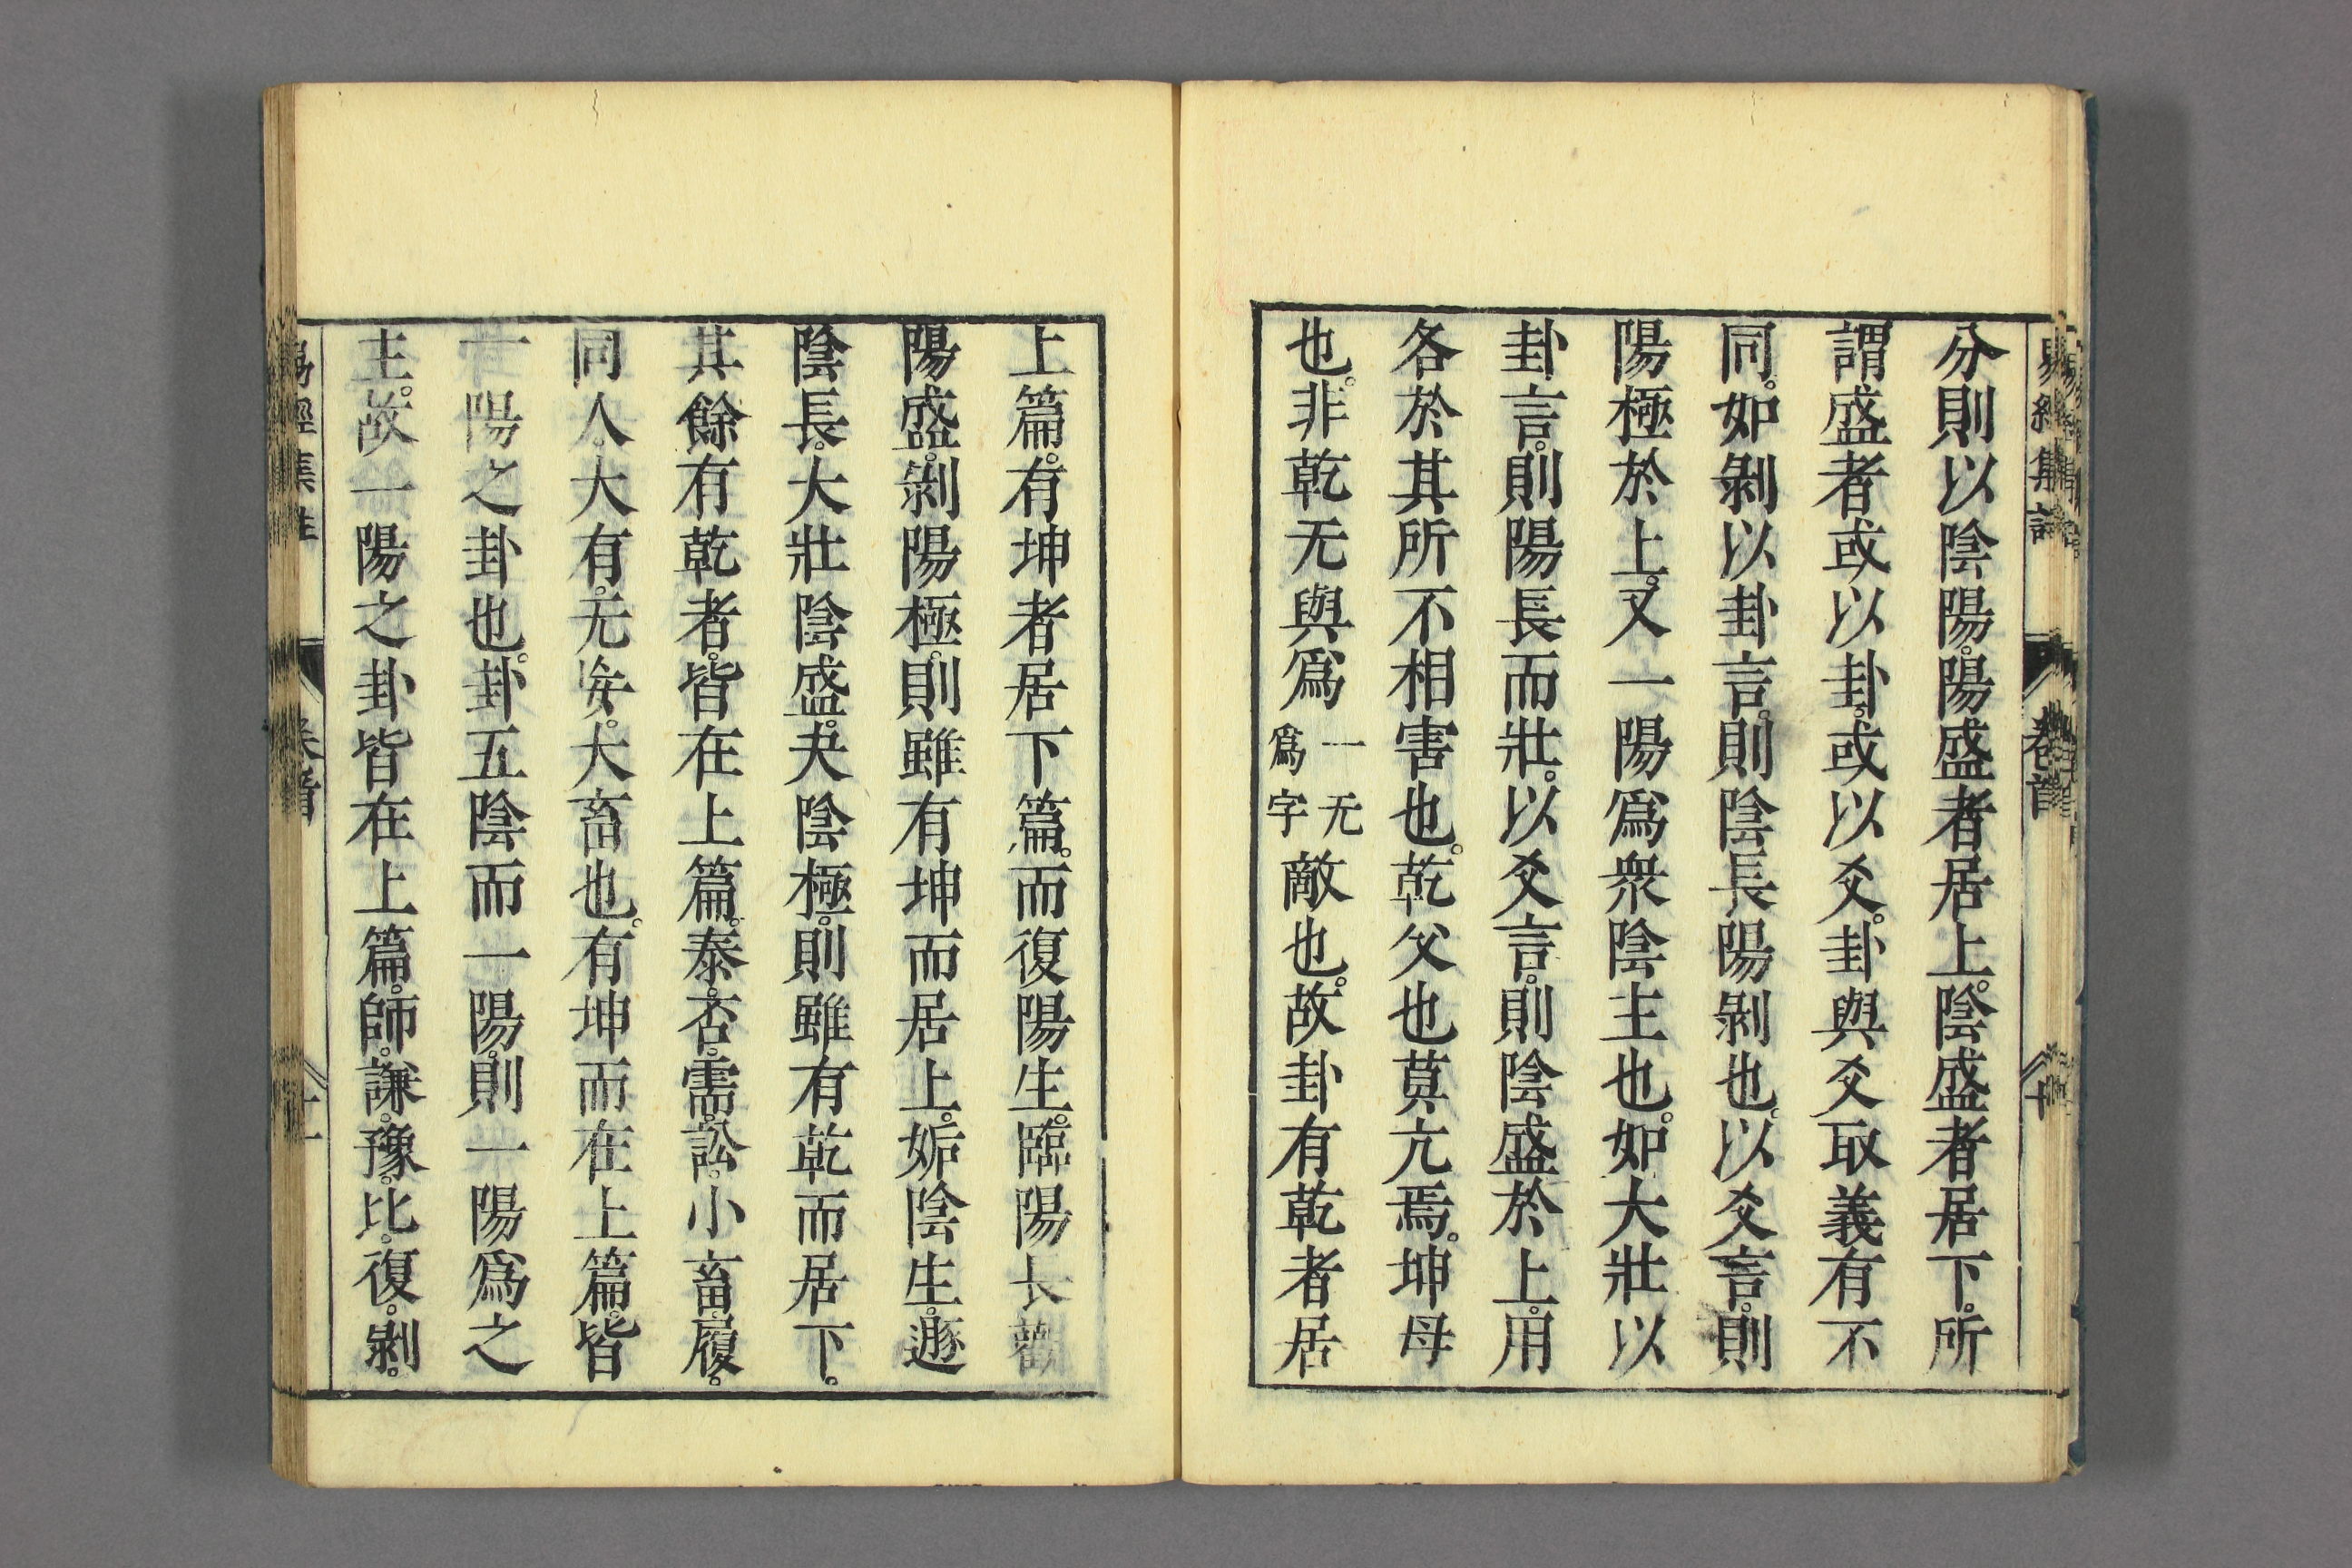 易經集註 卷首 十
分則以陰陽。陽盛者居上。陰盛者居下。所
謂盛者或以卦。或以爻。卦與爻取義有不
同。如剝以卦言。則陰長陽剝也。以爻言。則
陽極於上。又一陽爲衆陰主也。如大壯以
卦言。則陽長而壯。以爻言。則陰盛於上。用
各於其所不相害也。乾父也莫亢焉。坤母
也。非乾无與爲一无爲字敵也。故卦有乾者居
上篇。有坤者居下篇。而復陽生。臨陽長觀
陽盛。剝陽極。則雖有坤而居上。姤陰生。遯
陰長。大壯陰盛。夬陰極。則雖有乾而居下。
其餘有乾者。皆在上篇。泰。否。需。訟。小畜。履。
同人。大有。无妄。大畜也。有坤而在上篇。皆
一陽之卦也。卦五陰而一陽。則一陽爲之
主。故一陽之卦皆在上篇。師。謙。豫。比。復。剝。
易經集註 卷首 十一